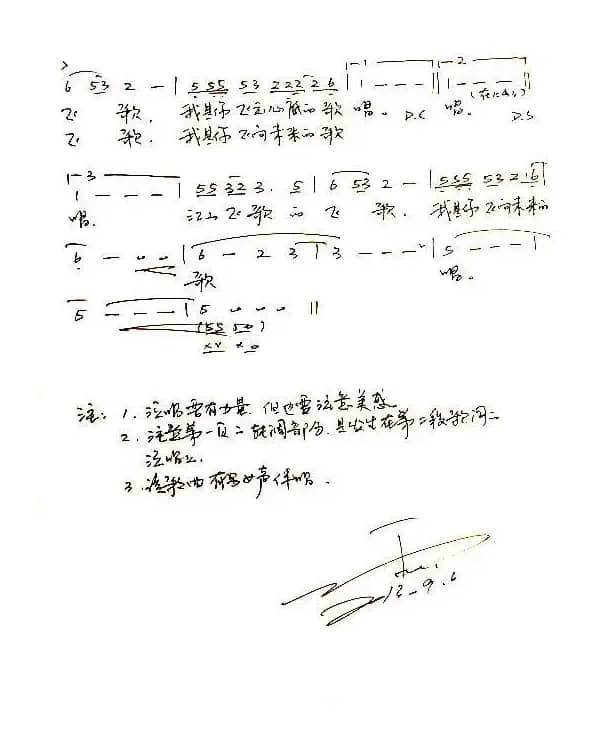 6 53 2 - | 5 55 53 222 2 6 | 1 - - - | 1 - - -
飞 歌, 我是你飞在心底的歌 唱。 D.C 唱。 D.S
飞 歌. 我是你飞向未来的歌
1 - - - | 55 32 3. 5 | 6 53 2 - | 5 55 53 2 16 |
唱. 江山飞歌的飞 歌. 我是你飞向未来的
6 - | 6 - 2 3 | 3 - - - | 5 - - - |
歌 唱。
5 - - - | 5 ||
(55 50)
xx x0
注: 1. 演唱要有力量 但也要注意美感
2. 注意第一页 转调部分. 是出在第二段歌词
演唱上.
3. 该歌曲有男女声伴唱.
12-9.6